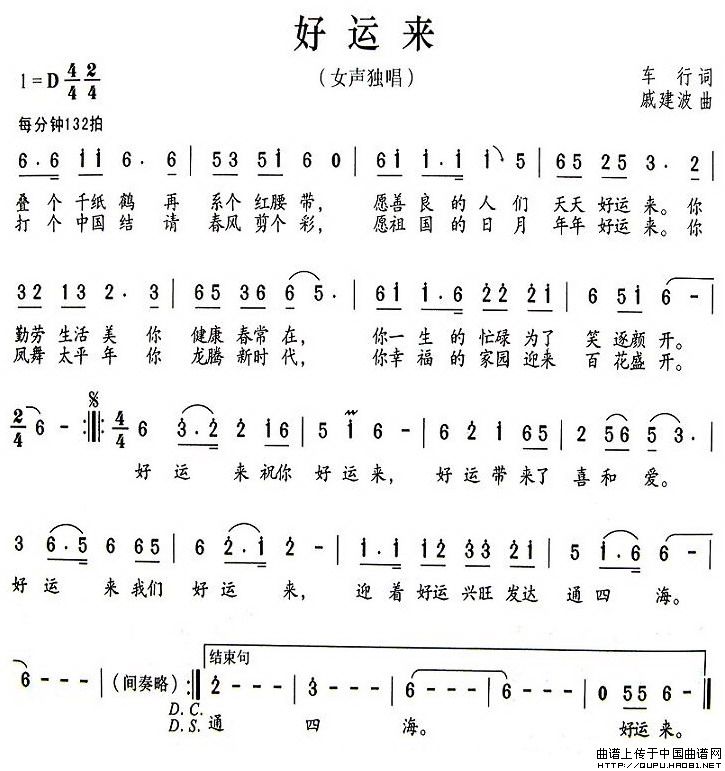 好运来
（女声独唱）
1=D 4/4 2/4
车行词
戚建波曲
每分钟132拍
6·6 i i 6·6 | 53 5i 6 0 | 6i i·i i 5 | 65 25 3·2 |
叠个千纸鹤再系个红腰带，愿善良的人们天天好运来。你
打个中国结请春风剪个彩，愿祖国的日月年年好运来。你
32 13 2·3 | 65 36 6 5· | 6i i·6 22 2i | 6 5i 6 - |
勤劳生活美你健康春常在，你一生的忙碌为了笑逐颜开。
凤舞太平年你龙腾新时代，你幸福的家园迎来百花盛开。
2/4 6 - :‖: 4/4 6 3·2 2 i6 | 5 i 6 - | 6 2 i 65 | 2 56 5 3· |
好运来祝你好运来，好运带来了喜和爱。
3 6·5 6 65 | 6 2·i 2 - | i·i i2 33 2i | 5 i·6 6 - |
好运来我们好运来，迎着好运兴旺发达通四海。
6 - - - | （间奏略） :‖ 2 - - - | 3 - - - | 6 - - - | 6 - - - | 0 55 6 0 ‖
结束句
D.C.
D.S. 通四海。好运来。
曲谱上传于中国曲谱网
HTTP://QUPU.HAO81.NET